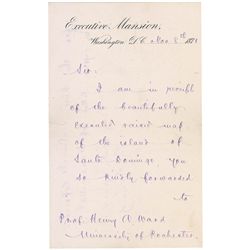 Executive Mansion,
Washington D.C. Nov 8th 1871
Sir:
I am in receipt
of the beautifully
executed raised map
of the island of
Santo Domingo you
so kindly forwarded
to
Prof. Henry A Ward
University of Rochester